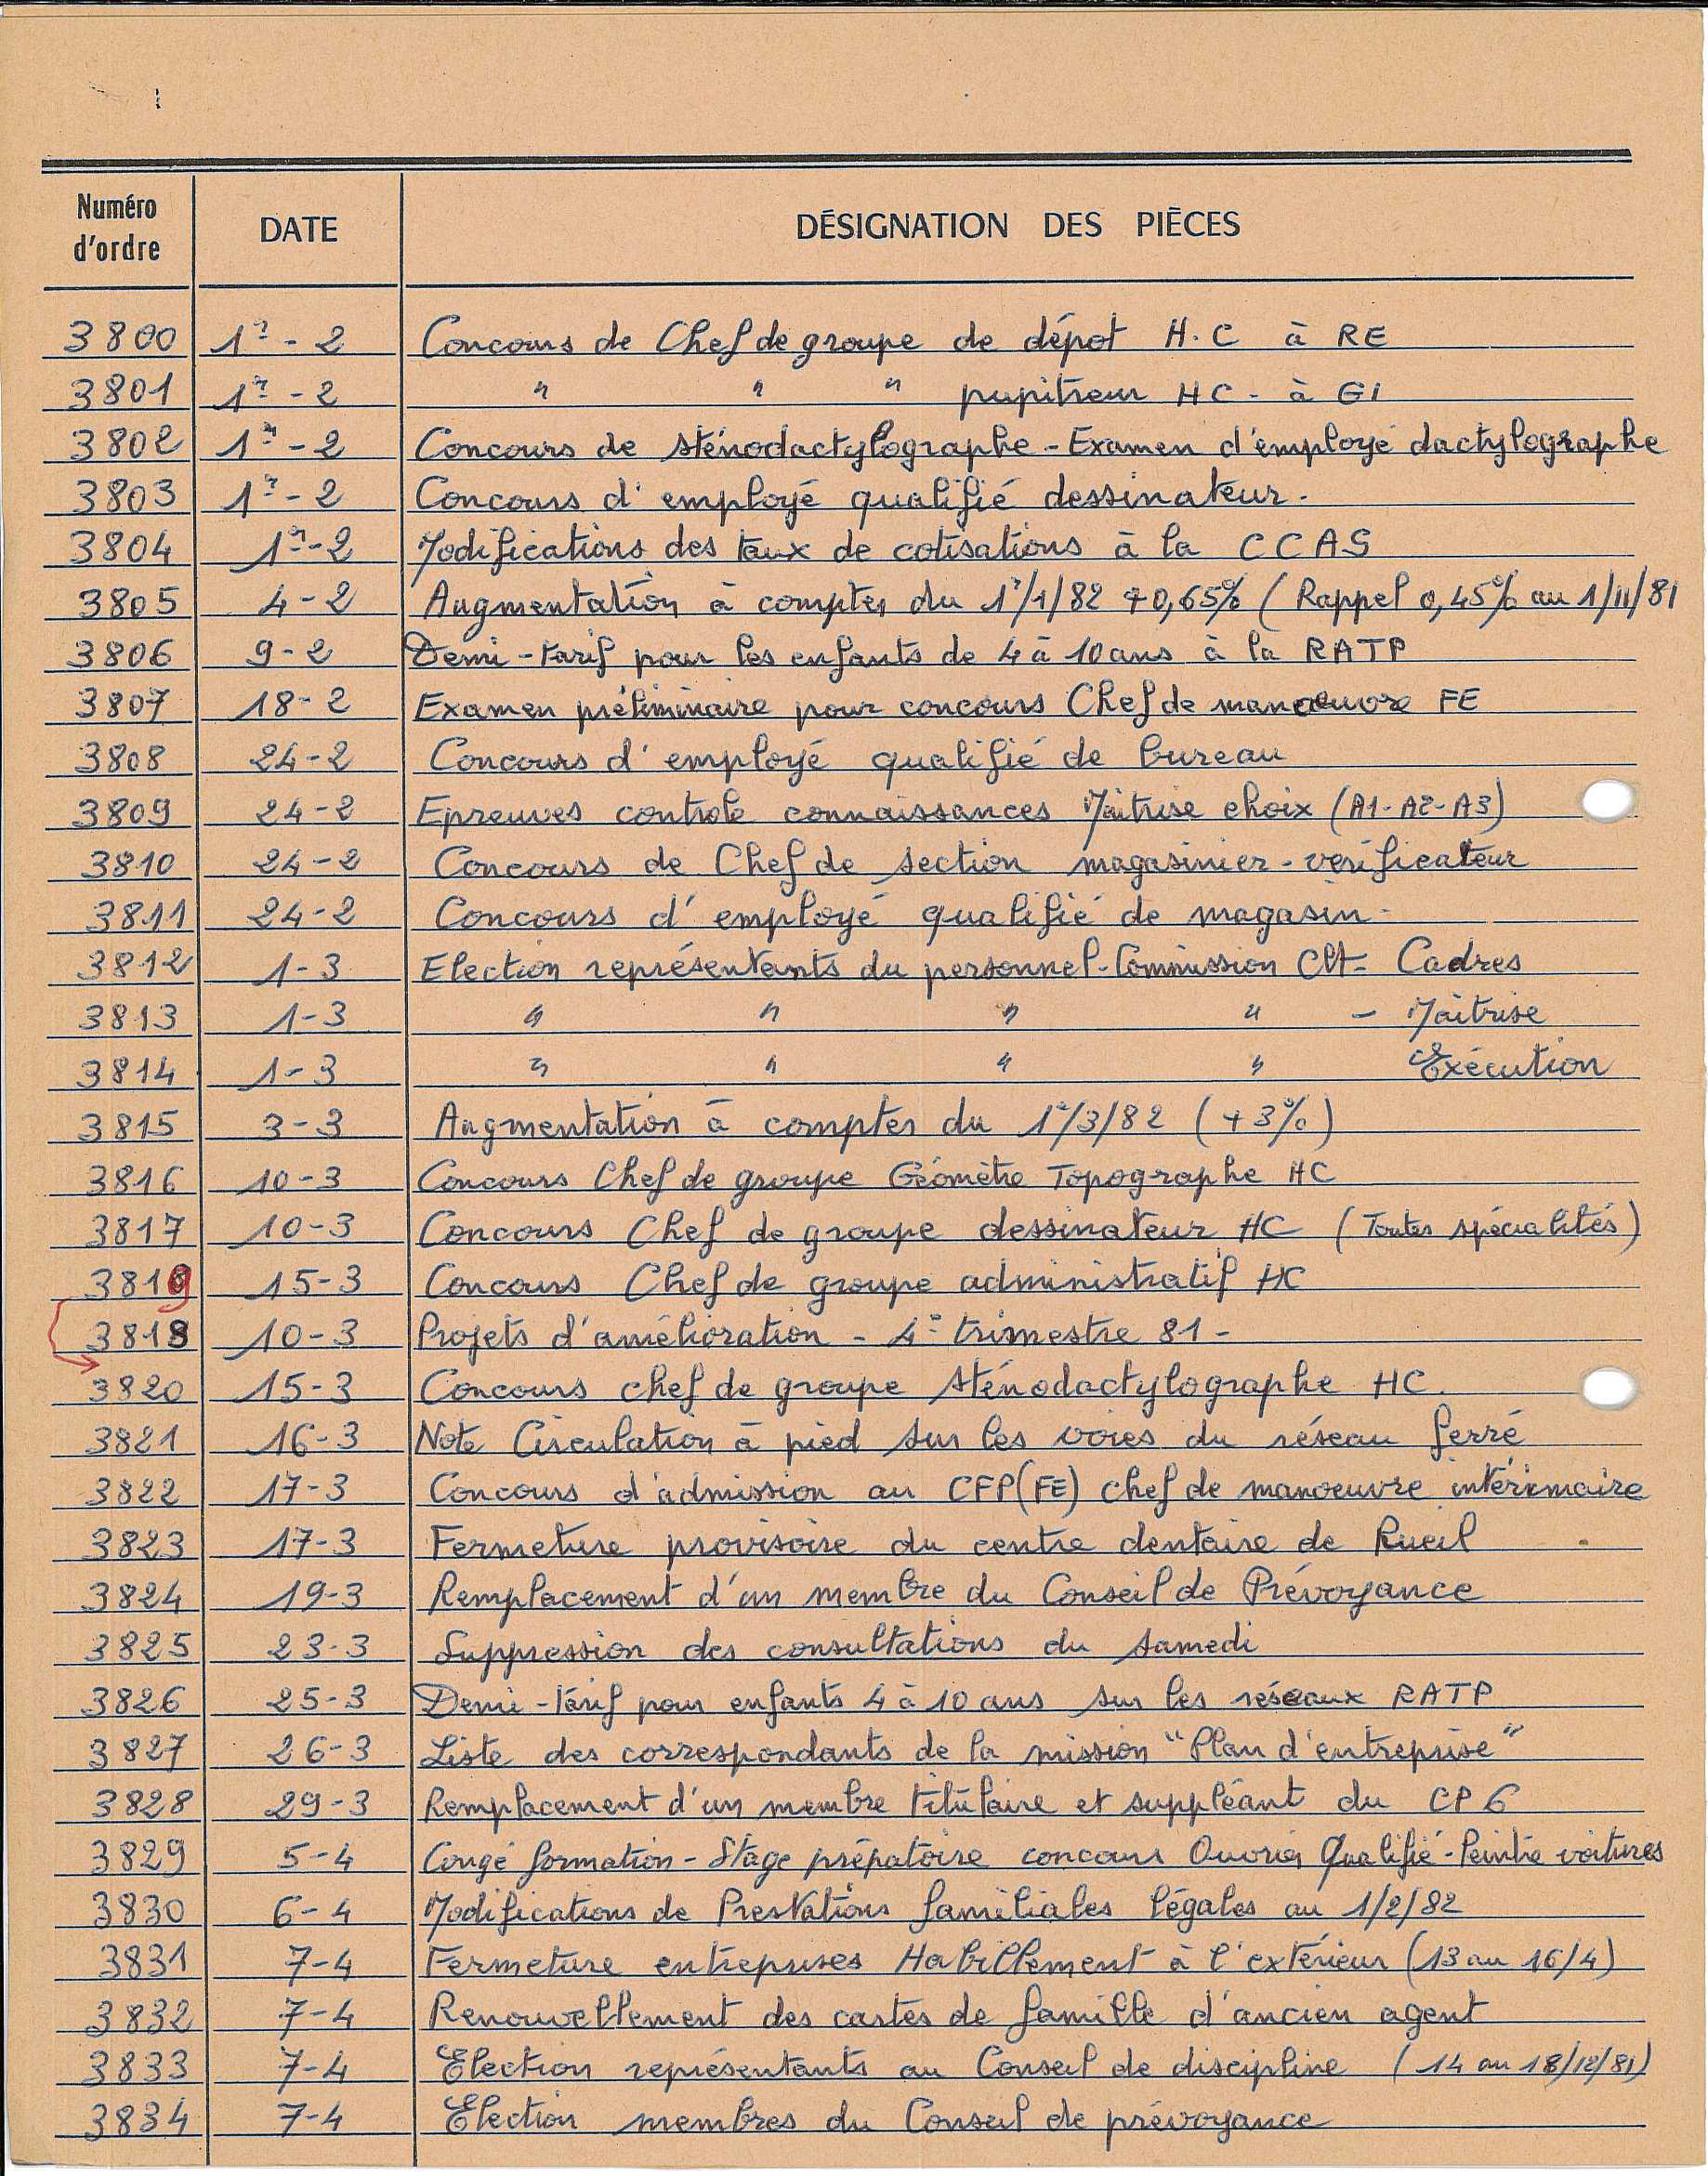 Numéro d'ordre DATE DÉSIGNATION DES PIÈCES
3800 1er - 2 Concours de Chef de groupe de dépot H.C à RE
3801 1er - 2 " " " pupitreur HC - à GI
3802 1er - 2 Concours de sténodactylographe - Examen d'employé dactylographe
3803 1er - 2 Concours d'employé qualifié dessinateur.
3804 1er - 2 Modifications des taux de cotisations à la CCAS
3805 4-2 Augmentation à compter du 1er/1/82 +0,65% (Rappel 0,45% au 1/11/81
3806 9-2 Demi-tarif pour les enfants de 4 à 10 ans à la RATP
3807 18-2 Examen préliminaire pour concours Chef de manoeuvre FE
3808 24-2 Concours d'employé qualifié de bureau
3809 24-2 Epreuves controle connaissances Maîtrise choix (A1-A2-A3)
3810 24-2 Concours de Chef de section magasinier-vérificateur
3811 24-2 Concours d'employé qualifié de magasin.
3812 1-3 Election représentants du personnel-Commission Clt- Cadres
3813 1-3 " " " " - Maîtrise
3814 1-3 " " " " Exécution
3815 3-3 Augmentation à compter du 1er/3/82 (+3%)
3816 10-3 Concours Chef de groupe Géomètre Topographe HC
3817 10-3 Concours Chef de groupe dessinateur HC (Toutes spécialités)
3819 15-3 Concours Chef de groupe administratif HC
3818 10-3 Projets d'amélioration - 4e trimestre 81 -
3820 15-3 Concours chef de groupe sténodactylographe HC.
3821 16-3 Note Circulation à pied sur les voies du réseau ferré
3822 17-3 Concours d'admission au CFP(FE) chef de manoeuvre intérimaire
3823 17-3 Fermeture provisoire du centre dentaire de Rueil
3824 19-3 Remplacement d'un membre du Conseil de Prévoyance
3825 23-3 Suppression des consultations du samedi
3826 25-3 Demi-tarif pour enfants 4 à 10 ans sur les réseaux RATP
3827 26-3 Liste des correspondants de la mission "Plan d'entreprise"
3828 29-3 Remplacement d'un membre titulaire et suppléant du CP 6
3829 5-4 Congé formation - Stage prépatoire concours Ouvrier Qualifié-Peintre voitures
3830 6-4 Modifications de Prestations familiales légales au 1/2/82
3831 7-4 Fermeture entreprises Habillement à l'extérieur (13 au 16/4)
3832 7-4 Renouvellement des cartes de famille d'ancien agent
3833 7-4 Election représentants au Conseil de discipline (14 au 18/12/81)
3834 7-4 Election membres du Conseil de prévoyance